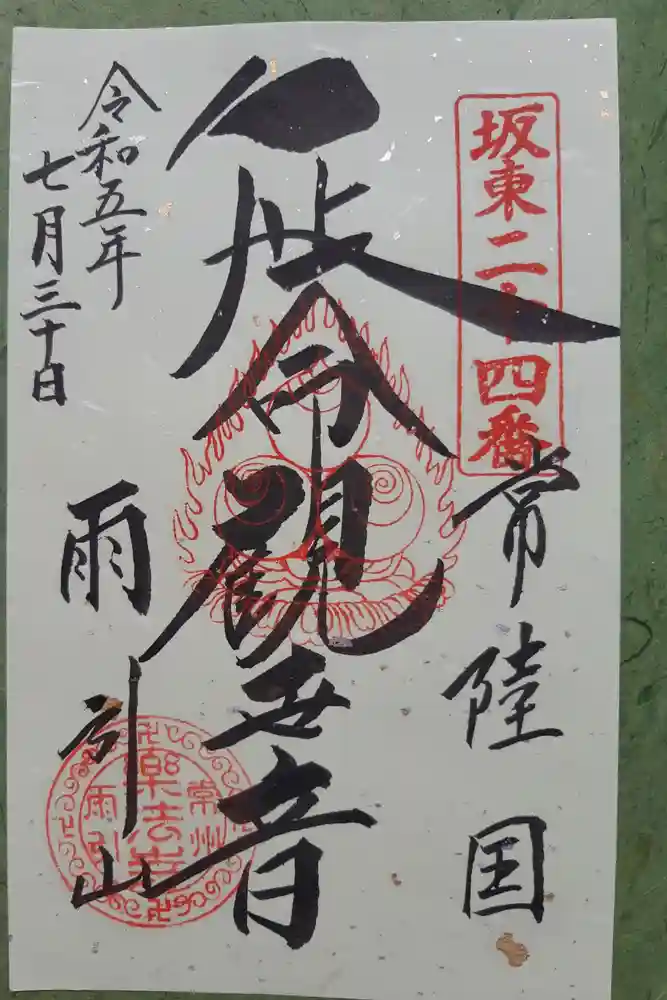 坂東二十四番
常陸国
延命觀世音
雨引山
令和五年
七月三十日
常州
樂法寺
雨引